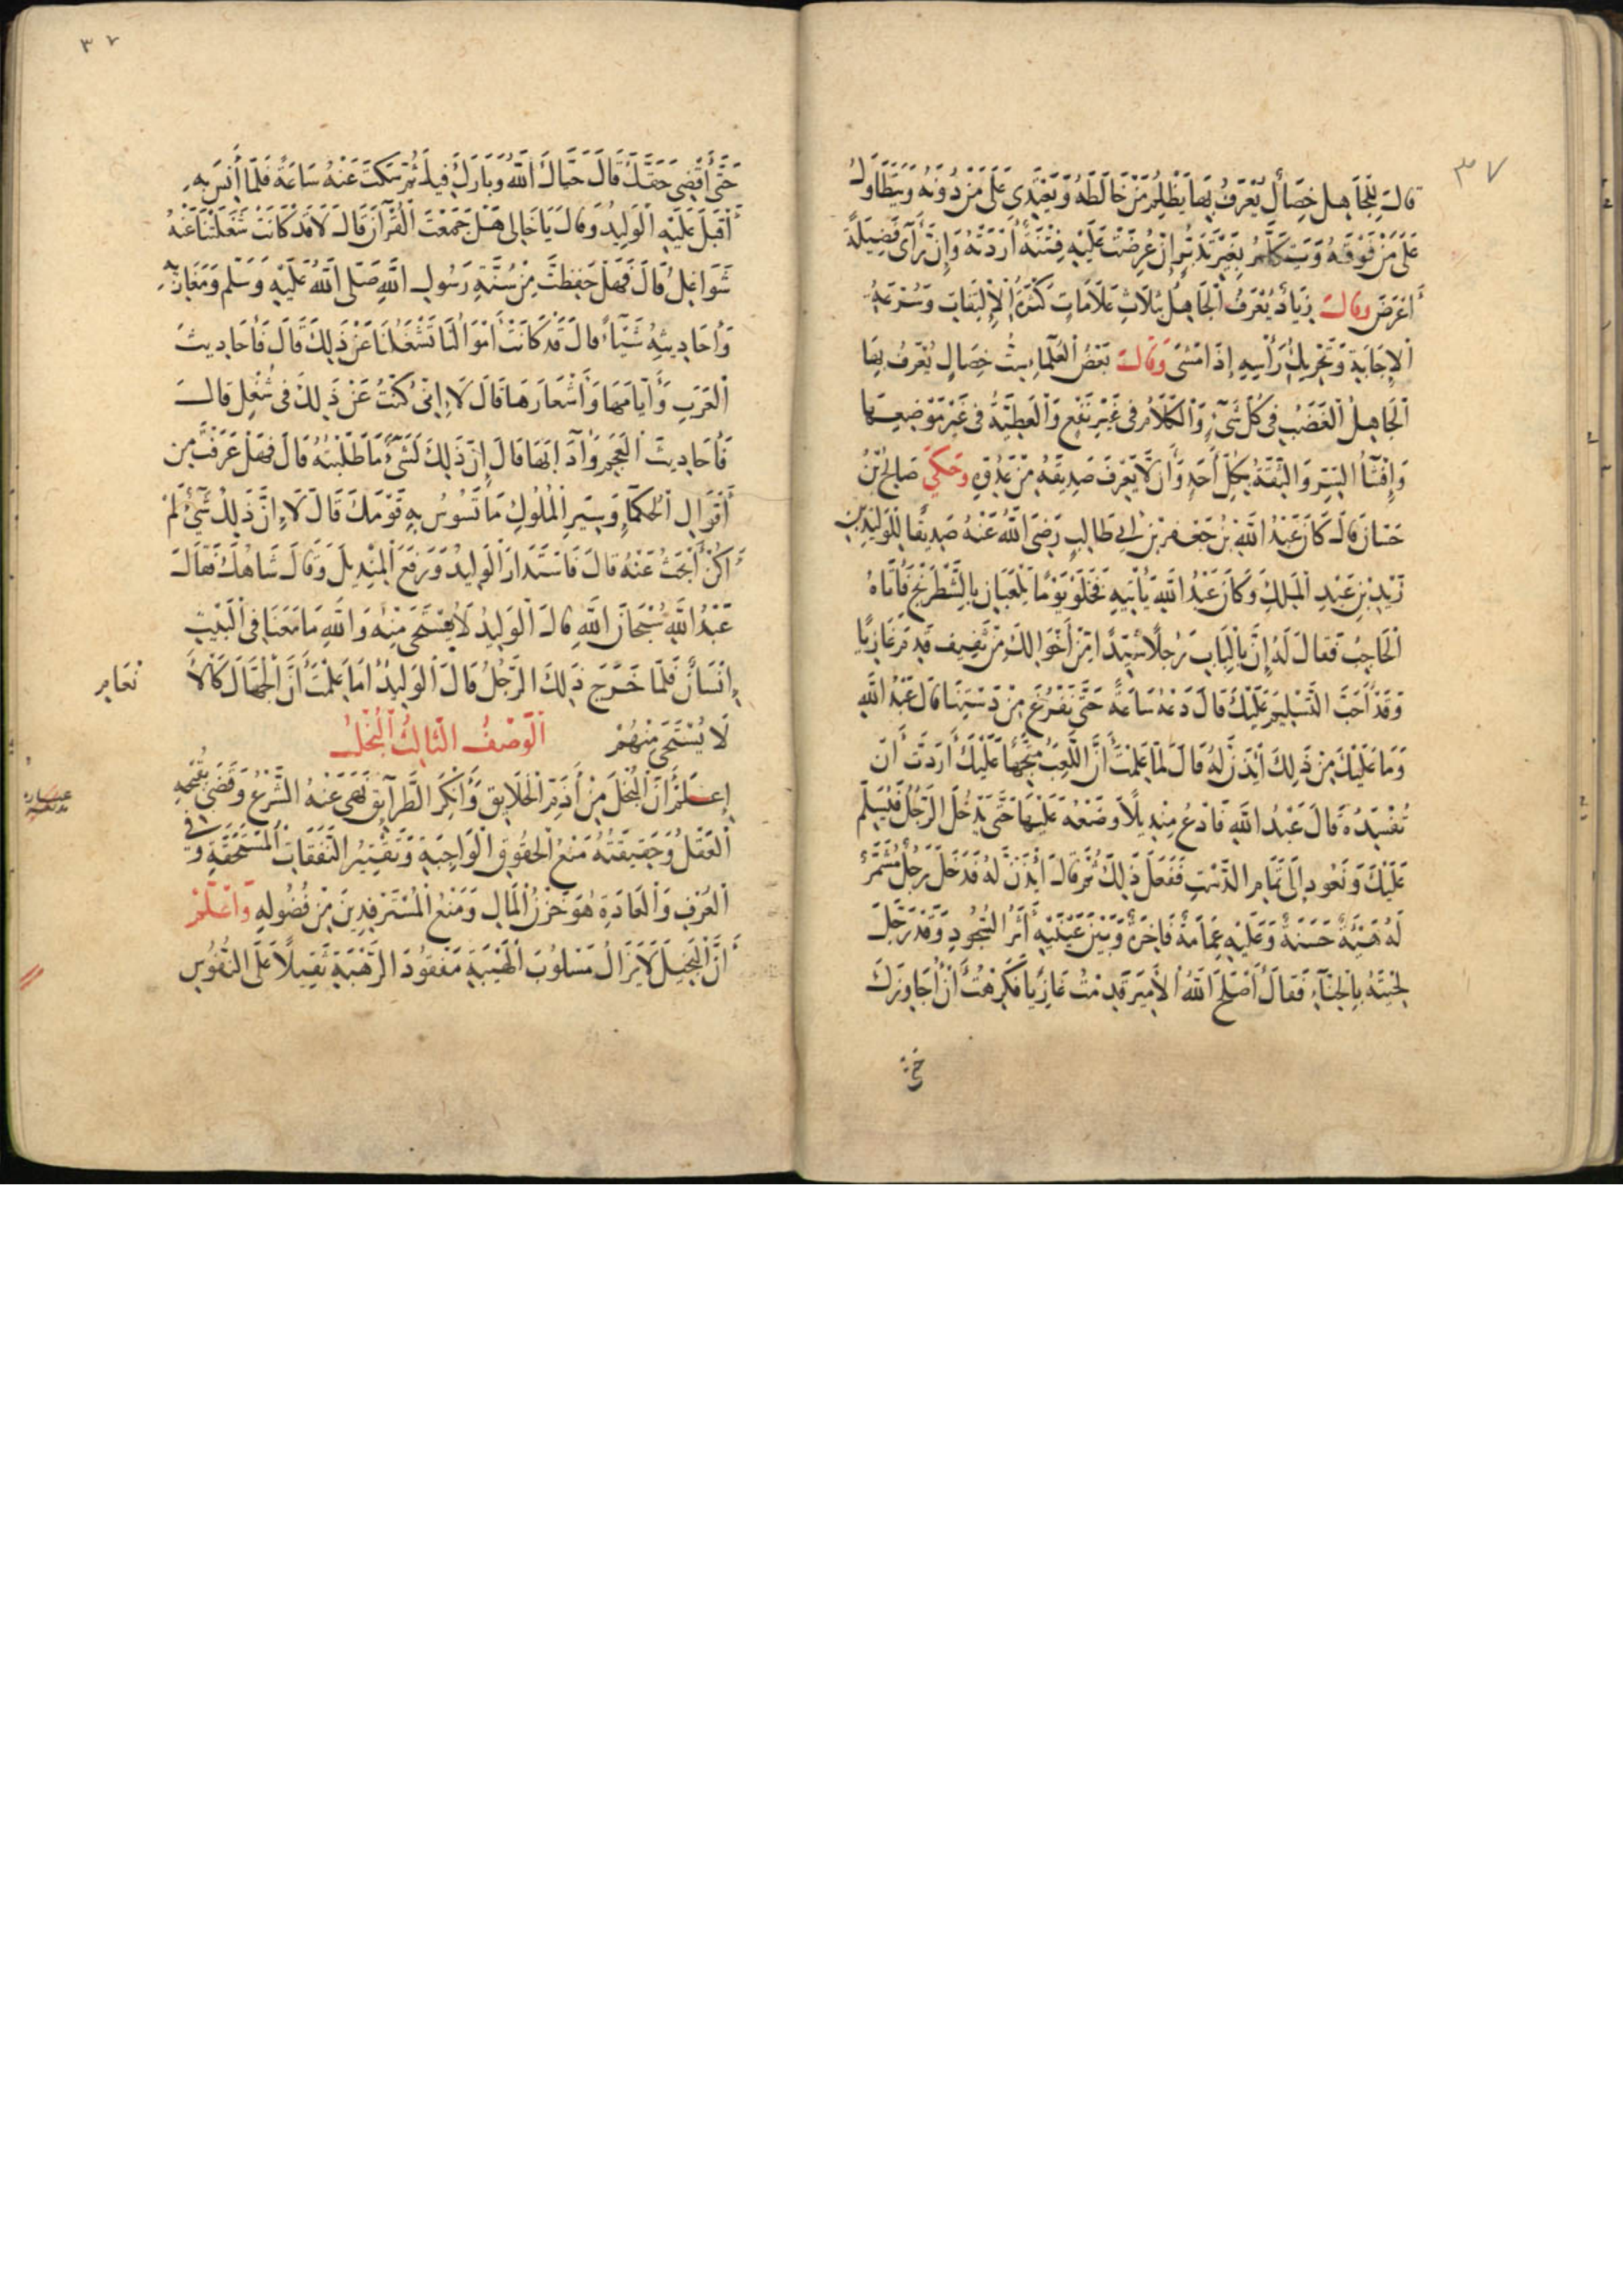 ٣٧
قال للجاهل خصال يعرف بها يظلم من خالطه ويعتدى على من دونه ويتطاول
على من فوقه ويتكلم بغير تدبر إن عرضت عليه فتنة أردته وإن رأى فضيلة
أعرض وقال زياد يعرف الجاهل بثلاث علامات كثرة الإلتفات وسرعة
الإجابة وتحريك رأسه إذا مشى وقال بعض العلماء ست خصال يعرف بها
الجاهل الغضب فى كل شىء والكلام فى غير نفع والعطية فى غير موضعها
وإفشاء السر والثقة بكل أحد وأن لا يعرف صديقه من عدوه وحكي صالح بن
حسان قال كان عبد الله بن جعفر بن ابي طالب رضى الله عنه صديقا للوليد بن
زيد بن عبد الملك وكان عبد الله يأتيه فخلو يوما يلعبان بالشطرنج فأتاه
الحاجب فقال له إن بالباب رجلا سيدا من أخوالك من ثقيف قدم غازيا
وقد أحب التسليم عليك قال دعه ساعة حتى نفرغ من دستنا قال عبد الله
وما عليك من ذلك أيذن له قال لما علمت أن اللعب متجها عليك أردت أن
تفسده قال عبد الله فادع منديلا وضعه عليها حتى يدخل الرجل فيسلم
عليك ونعود إلى تمام الدست ففعل ذلك ثم قال أيذن له فدخل رجل مشمر
له هيئة حسنة وعليه عمامة فاخرة وبين عينيه أثر السجود وقد رجل
لحيته بالحناء فقال أصلح الله الأمير قدمت غازيا فكرهت أن أجاوزك
٣٧
حتى أقضى حقك قال حياك الله وبارك فيك ثم سكت عنه ساعة فلما أنس به
أقبل عليه الوليد وقال يا خالى هل جمعت القرآن قال لا قد كانت شغلتنا عنه
شواغل قال فهل حفظت من سنة رسول الله صلى الله عليه وسلم ومغازيه
وأحاديثه شيأ قال قد كانت أموالنا تشغلنا عن ذلك قال فأحاديث
العرب وأيامها وأشعارها قال لا إنى كنت عن ذلك فى شغل قال
فأحاديث العجم وآدابها قال إن ذلك لشىء ما طلبته قال فهل عرفت من
أقوال الحكماء وسير الملوك ما تسوس به قومك قال لا إن ذلك شىء لم
أكن أبحث عنه قال فاستدار الوليد ورفع المنديل وقال شاهك فقال
عبد الله سبحان الله قال الوليد لا يستحى منه والله ما معنا فى البيت
إنسان فلما خرج ذلك الرجل قال الوليد أما علمت أن الجهال كالأ
نعام
لا يستحى منهم الوصف الثالث البخل
إعلم أن البخل من أذم الخلايق وأنكر الطرايق نهى عنه الشرع وقضى بقبحه
العقل وحقيقته منع الحقوق الواجبة وتقتير النفقات المستحقة وفي
العرف والعادة هو خزن المال ومنع المسترفدين من فضوله واعلم
أن البخيل لا يزال مسلوب الهيبة مفقود الرهبة ثقيلا على النفوس